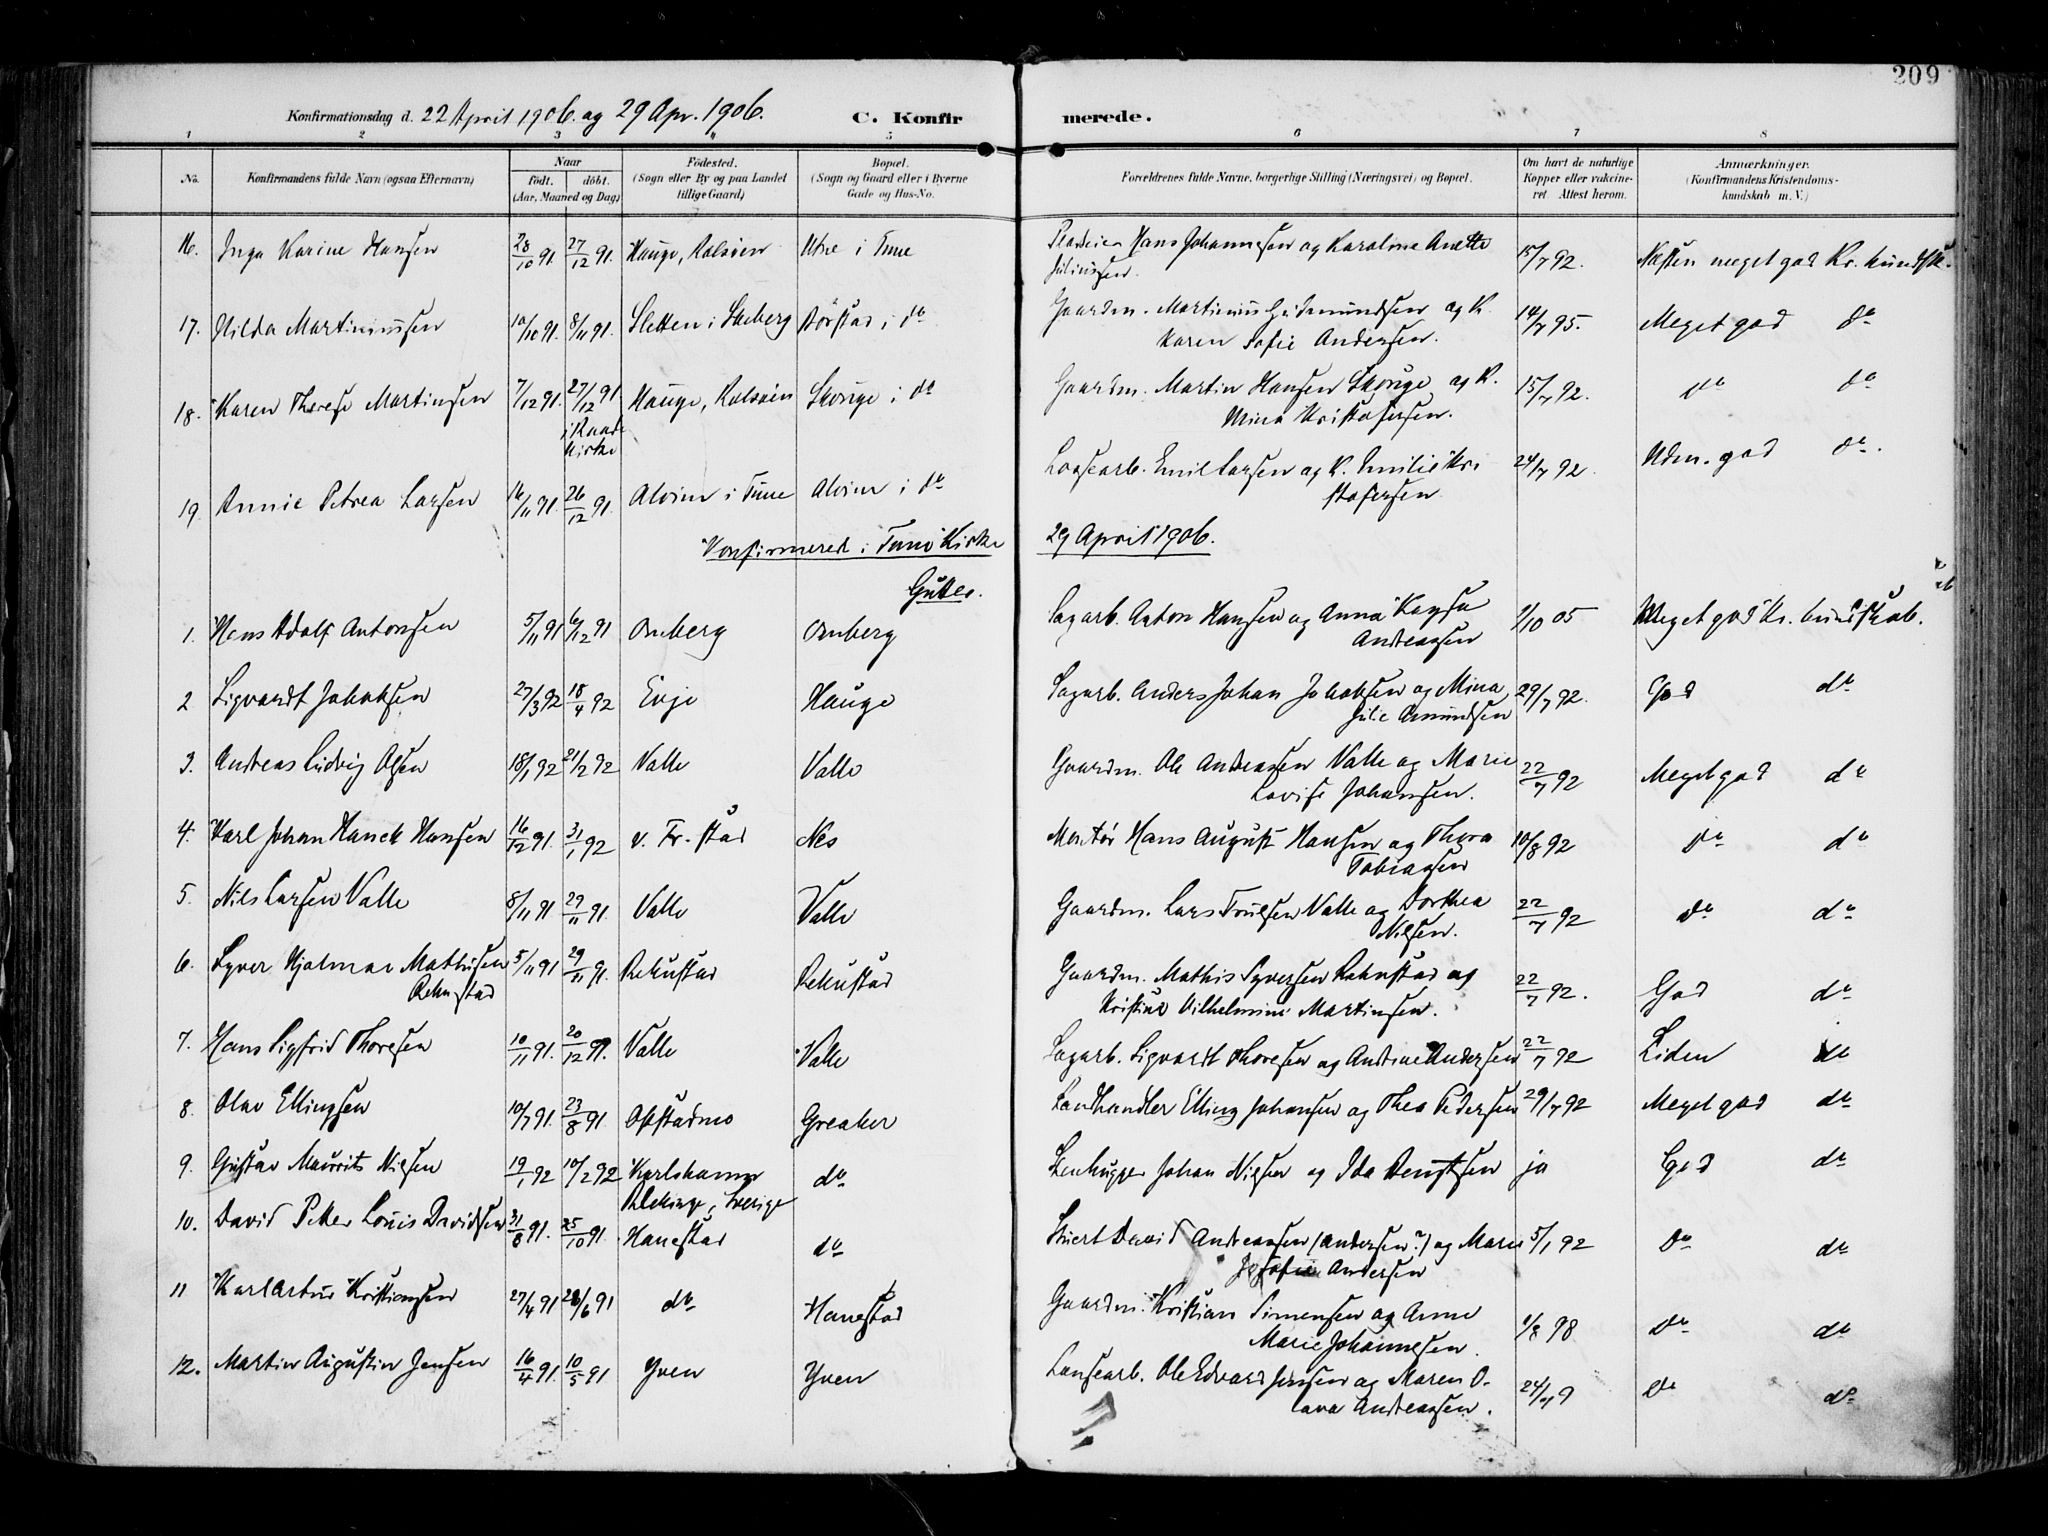 209
Konfirmationsdag d. 22 April 1906. og 29 Apr. 1906.
C. Konfirmerede.
1 2 3 4 5 6 7 8
No. Konfirmandens fulde Navn (ogsaa Efternavn) Naar født. døbt. (Aar, Maaned og Dag) Fødested. (Sogn eller By og paa Landet tillige Gaard) Bopæl. (Sogn og Gaard eller i Byerne Gade og Hus-No. Forældrenes fulde Navne, borgerlige Stilling (Næringsvei) og Bopæl. Om havt de naturlige Kopper eller vaccineret. Attest herom. Anmærkninger. (Konfirmandens Kristendomskundskab m. V.)
16. Inga Karine Hansen 28/10 91. 27/12 91. Hauge, Rolsøien Utne i Tune Hans Johannesen og Karoline Anette Juliussen. 15/7 92. Næsten meget god Kr. kundsk.
17. Hilda Martiniussen 10/10 91. 8/11 91. Sletten i Skeberg i do Gaardm. Martinius Gudmundsen og K. Karen Sofie Andersen. 14/7 95. Meget god do
18. Karen Therese Martinsen 7/12 91. 27/12 91 i Raade Kirke Hauge, Rolsøien Skouge i do Gaardm. Martin Hansen Skouge og K. Mina Kristofersen. 15/7 92. do do
19. Annie Petrea Larsen 16/11 91. 26/12 91. Alvim i Tune Alvim i do Løsearb. Emil Larsen og K. Emilie Kristofersen 24/7 92. Udm. god do.
Konfirmered i Tune Kirke 29 April 1906.
Gutter.
1. Hans Adolf Antonsen 5/11 91 6/12 91 Omberg Omberg Sagarb. Anton Hansen og Anna Kaysa Andreassen 1/10 05 Meget god Kr. kundskab.
2 Sigvardt Jakobsen 27/3 92 18/4 92 Evje Hauge Sagarb. Anders Johan Jakobsen og Mina Julie Amundsen 29/7 92. God do
3. Andreas Ludvig Olsen 18/1 92 21/2 92 Valle Valle Gaardm. Ole Andreassen Valle og Marie Lovise Johansen. 22/7 92 Meget god do
4. Karl Johan Hauch Hansen 16/12 91. 31/1 92 v. Fr. stad Nes Montør Hans August Hansen og Thora Tobiassen 10/8 92 do do
5. Nils Larsen Valle 8/11 91 29/11 91. Valle Valle Gaardm. Lars Truelsen Valle og Dorthea Nilsen. 22/7 92 do do
6. Syver Hjalmar Mathisen Rekustad 5/11 91 29/11 91. Rekustad Rekustad Gaardm. Mathis Syversen Rekustad og Kristine Vilhelmine Martinsen. 22/7 92. God do
7. Hans Sigfrid Thoresen 10/11 91. 20/12 91. Valle Valle Sagarb. Sigvardt Thoresen og Andrine Andersen 22/7 92 Liden do
8. Olav Ellingsen 10/7 91. 23/8 91. Opstadmo Greaker Landhandler Elling Johansen og Thea Pedersen 29/7 92 Meget god do
9. Gustav Mauritz Nielsen 19/1 92 10/2 92 Karlshamn Blekinge, Sverige do Stenhugger Johan Nielsen og Ida Bengtsen ja God do
10. David Petter Louis Davidsen 31/8 91. 25/10 91. Hanestad do David Andreassen (Andersen?) og Marie Josefine Andersen 5/1 92 do do
11 Karl Artur Kristiansen 27/4 91 28/6 91 do Hanestad Gaardm. Kristian Simensen og Anne Marie Johannesen. 1/8 98 do do
12. Martin Augustin Jensen 16/4 91. 10/5 91 Yven Yven Lansearb. Ole Edvard Jensen og Maren Olava Andreassen. 24/7 9 do do